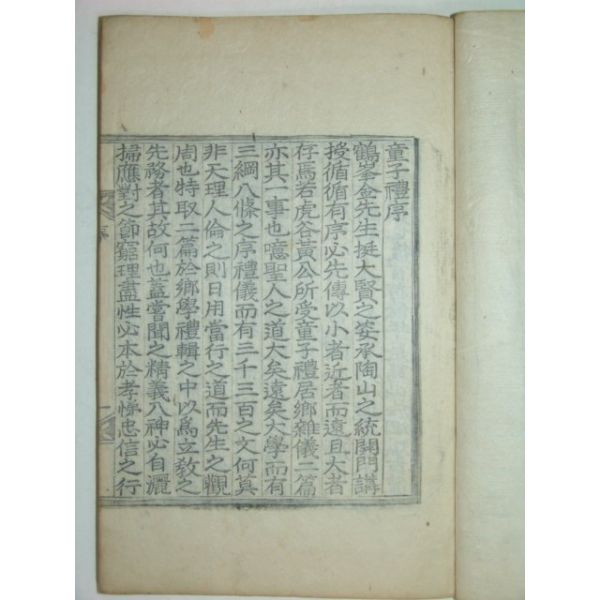 童子禮序
鶴峯金先生挺大賢之姿承陶山之統開門講
授循循有序必先傳以小者近者而遠且大者
存焉若虎谷黃公所受童子禮居鄉雜儀二篇
亦其一事也噫聖人之道大矣遠矣大學而有
三綱八條之序禮儀而有三千三百之文何莫
非天理人倫之則日用當行之道而先生之觀
周也特取二篇於鄉學禮輯之中以爲立敎之
先務者其故何也蓋嘗聞之精義入神必自灑
掃應對之節窮理盡性必本於孝悌忠信之行
序